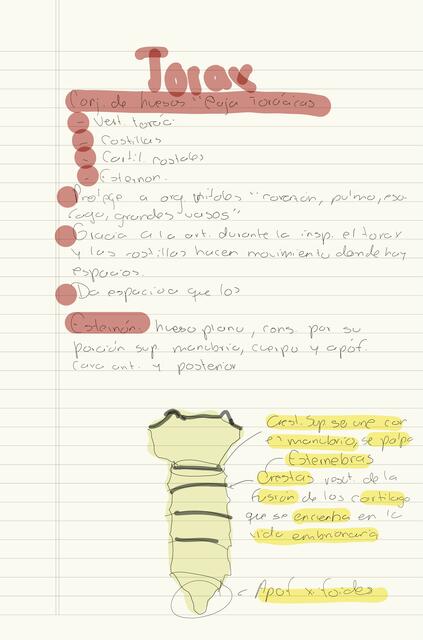 Torax
Conj. de huesos "Caja Torácicas
- Vert. toráci
- Costillas
- Cartil. costales
- Esternon.
Protege a org. vitales "corazón, pulmo, eso
fago, grandes vasos"
Gracia a la art. durante la insp. el torax
y las costillas hacen movimiento donde hay
espacios.
Da espacio a que los
Esternón: hueso plano, cons. por su
porción sup. manubrio, cuerpo y apóf.
cara ant. y posterior
Crest. Sup se une con
en manubrio, se palpa
Esternebras
Crestas result. de la
fusión de los cartílago
que se encuentra en la
vida embrionaria
Apof xifoides